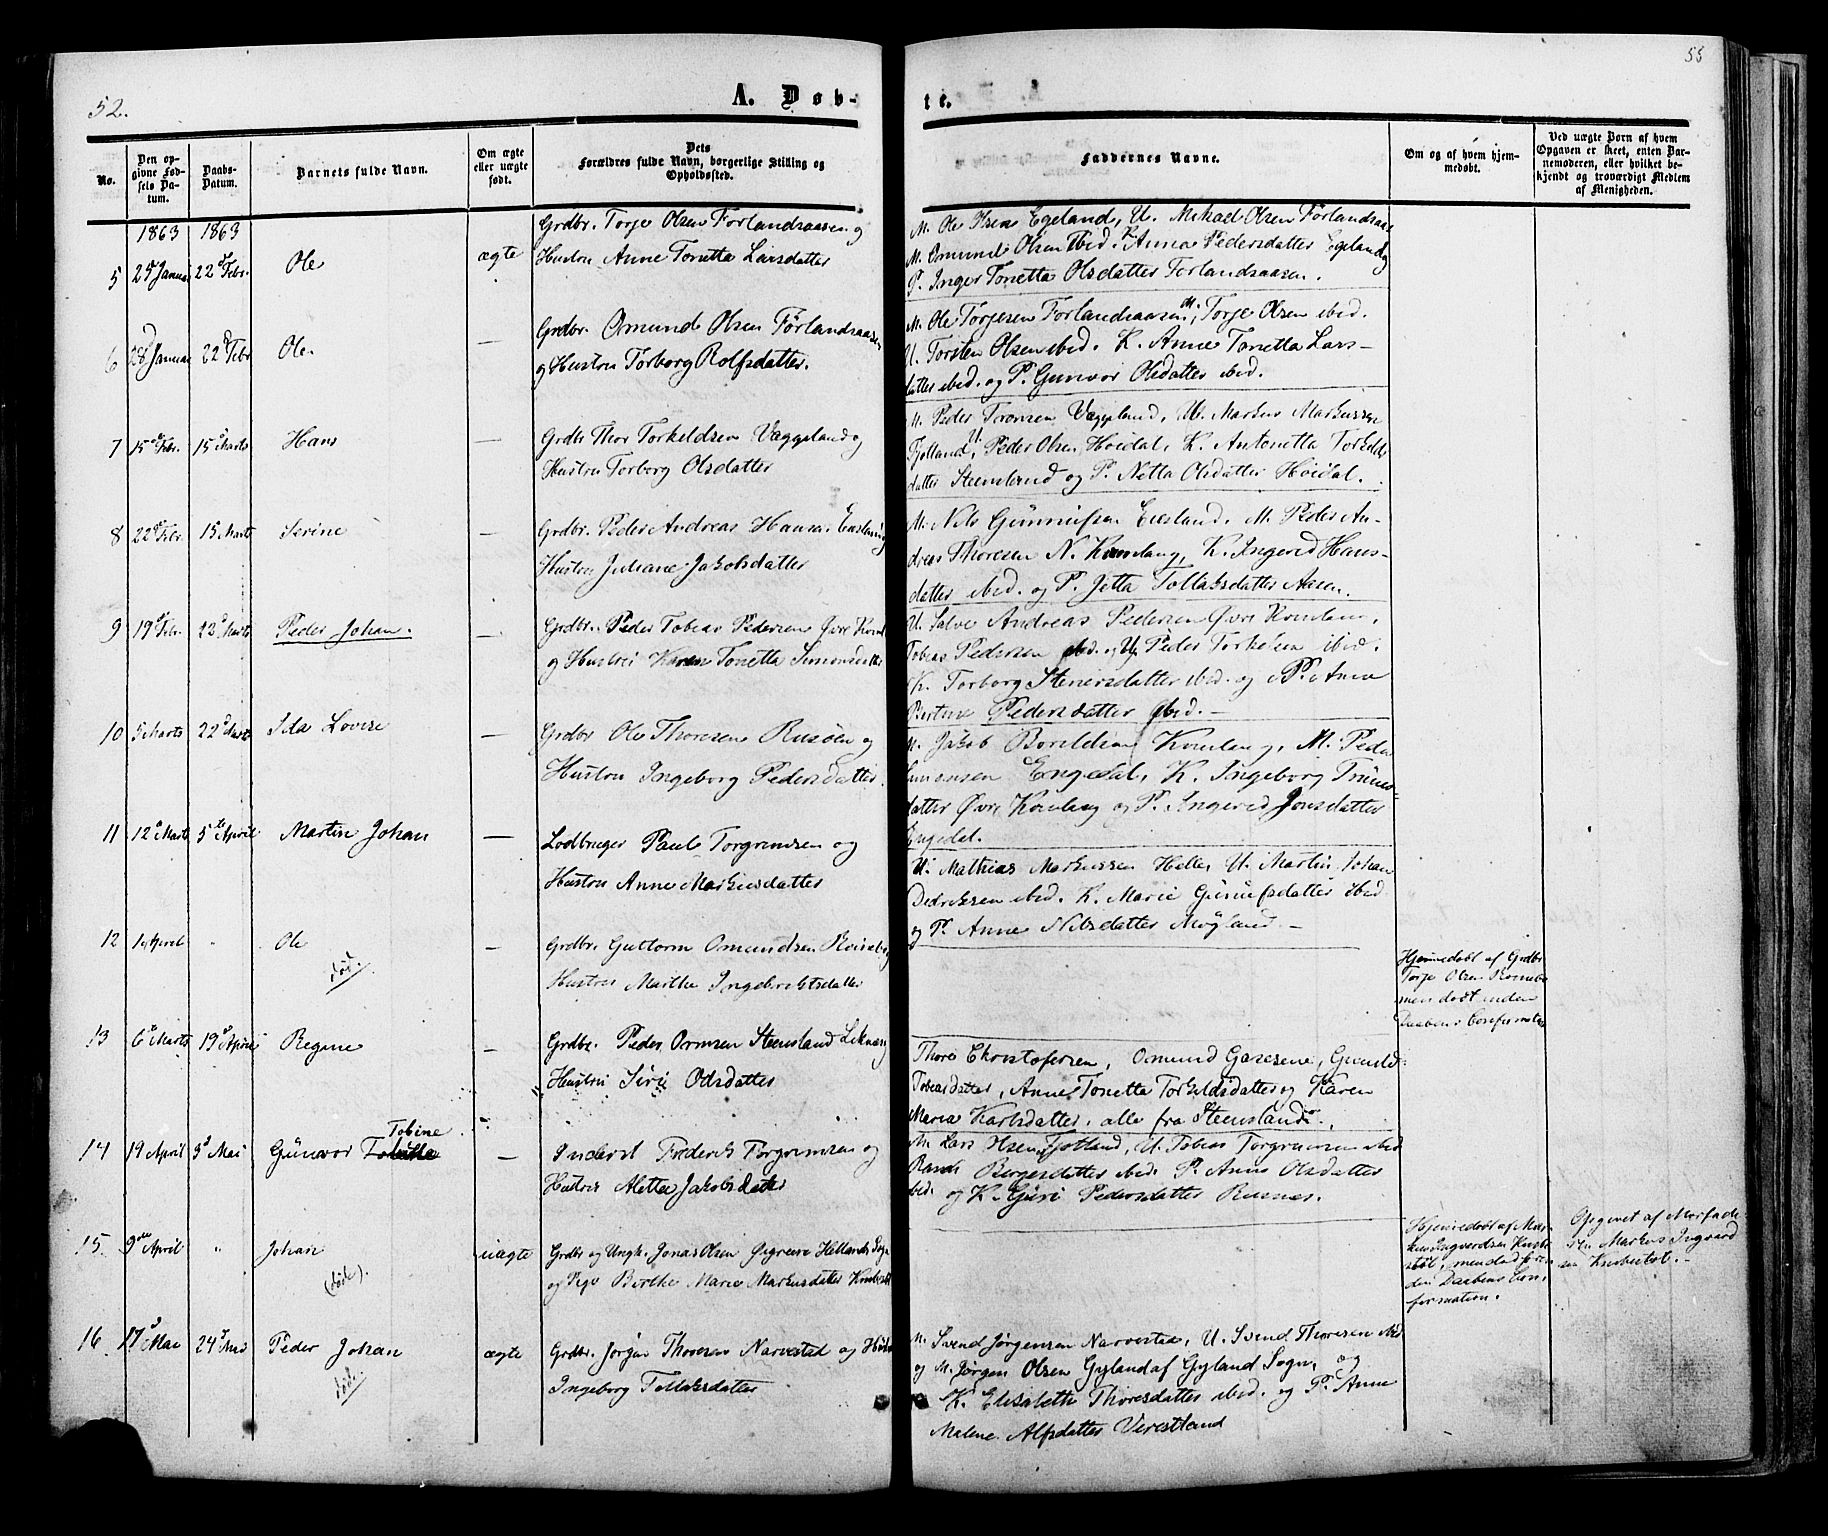 52.
A. Døb-
te.
55
No.
Den opgivne Fødsels Datum.
Daabs-Datum.
Barnets fulde Navn.
Om ægte eller uægte født.
Dets Forældres fulde Navn, borgerlige Stilling og Opholdssted.
Faddernes Navne.
Om og af hvem hjemmedøbt.
Ved uægte Børn af hvem Opgaven er skeet, enten Barnemoderen, eller hvilket bekjendt og troværdigt Medlem af Menigheden.
1863 1863
5 25 Januar 22 Febr. Ole ægte
Grdbr. Torje Olsen Førlandsaasen og
Hustru Anne Tonetta Larsdatter
M. Ole Egeland, U. Mikael Olsen Førlandsaas
M. Omund Olsen ibid. K. Anna Pedersdatter Egeland og
P. Inger Tonetta Olsdatter Førlandsaasen.
6 28 Januar 22 Febr Ole —
Grdbr. Omund Olsen Førlandsaasen
og Hustru Torborg Rolfsdatter.
M. Ole Torjesen Førlandsaasen, M. Torje Olsen ibid.
U. Torsten Olsen ibid. K. Anne Tonetta Lars-
datter ibid. og P. Gunvor Olsdatter ibid.
7 15de Febr. 15 Marts Hans —
Grdbr Thor Torkeldsen Væggeland og
Hustru Torborg Olsdatter
M. Peder Tronsen Væggeland, U. Markus Markussen
Fjotland, U. Peder Olsen Høidal, K. Antonetta Torkelds
datter Steenlund og P. Netta Olsdatter Høidal.
8 22de Febr. 15 Marts Serine —
Grdbr. Peder Andreas Hansen Eiesland og
Hustru Juliane Jakobsdatter
M. Nils Gunnufsen Eiesland. M. Peder An-
dreas Thoresen N. Kvinlaug, K. Ingerid Hans-
datter ibid. og P. Jetta Tollaksdatter Aasen.
9 19 Febr. 23 Marts Peder Johan. —
Grdbr. Peder Tobias Pedersen Øvre Kvinl
og Hustru Karen Tonetta Simonsdatter
U. Salve Andreas Pedersen Øvre Kvinlau,
Tobias Pedersen ibid. og U. Peder Torkelsen ibid.
K. Torborg Stenersdatter ibid. og P. Anne
Bertine Pedersdatter ibid. —
10 5 Marts 22 Marts Ida Lovise —
Grdbr Ole Thoresen Rusøen og
Hustru Ingeborg Pedersdatter.
M. Jakob Borildsen Kvinlaug, M. Peder
Simonsen Engedal, K. Ingeborg Trønes-
datter Øvre Kvinlaug og P. Ingerid Jonsdatter
Engedal.
11 12 Marts 5te April Martin Johan —
Lodbruger Paul Torgrimsen og
Hustru Anne Markusdatter
U. Mathias Markussen Helle, U. Martin Johan
Dedriksen ibid. K. Marie Gunufsdatter ibid
og P. Anne Nilsdatter Møgland. —
12 1 April " Ole —
død.
Grdbr. Guttorm Omundsen og
Hustru Marthe Ingebretsdatter
Hjemmedøbt af Grdbr
Torje Olsen
men dødt inden
Daabens Confirmation
13 6 Marts 19 April Regine —
Grdbr. Peder Ormsen Steensland Liknæs og
Hustru Siri Odsdatter
Thore Christofersen, Omund Gasesene, Gunild
Tobiasdatter, Anne Tonetta Torkildsdatter og Karen
Maria Karlsdatter. alle fra Steensland.
14 19 April 3 Mai Gunvor Tobine —
Inderst Frederik Torgrimsen og
Hustru Aletta Jakobsdatter
M. Lars Olsen Fjotland, U. Tobias Torgrimsen ibid
Randi Børgesdatter ibid. P. Anne Olsdatter
ibid. og K. Guri Pedersdatter Rusnes.
15. 9de April " Johan uægte
(død).
Grdbr og Ungk. Jonas Olsen Øigreeie Hellands Sogn
og Pige Birthe Marie Markusdatter Knibe
Hjemmedøbt af Mar-
kus Ingvordsen
men død for in-
den Daabens Con-
formation.
Opgivet af Morfade-
ren Markus Ingvord
sen
16 17 Mai 24 Mai Peder Johan ægte
død.
Grdbr. Jørgen Thoresen Narvestad og Hustru
Ingeborg Tollaksdatter
M. Svend Jørgensen Narvestad, U. Svend Thoresen ibid
og M. Jørgen Olsen Gyland af Gyland Sogn, og
K. Elisabeth Thoresdatter ibid. og P. Anne
Malene Alfsdatter Verestland